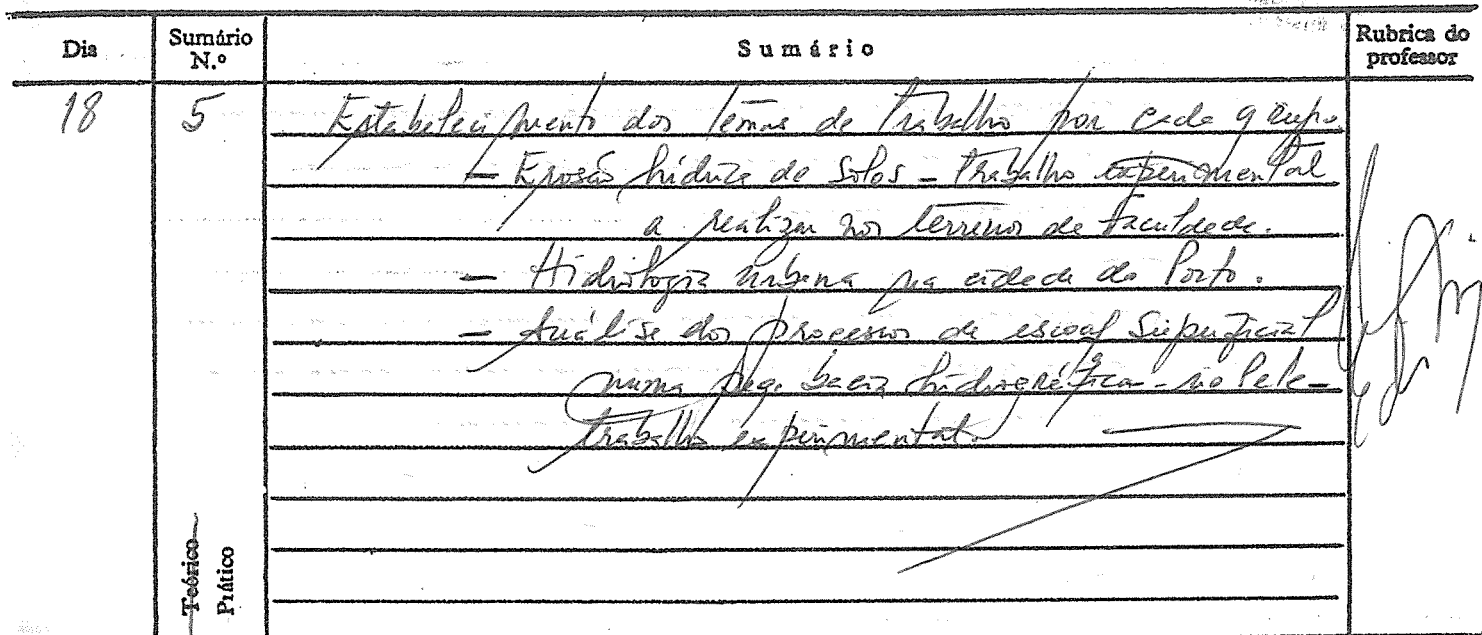 Dia
Sumário
N.º
Sumário
Rubrica do
professor
18
5
Estabelecimento dos temas de trabalho por cada grupo.
- Erosão hídrica de solos - trabalho experimental
a realizar nos terrenos da Faculdade.
- Hidrologia urbana na cidade do Porto.
- Análise dos processos de escoaf superficial
numa peq. bacia hidrográfica - rio Lele -
trabalho experimental.
Teórico
Prático